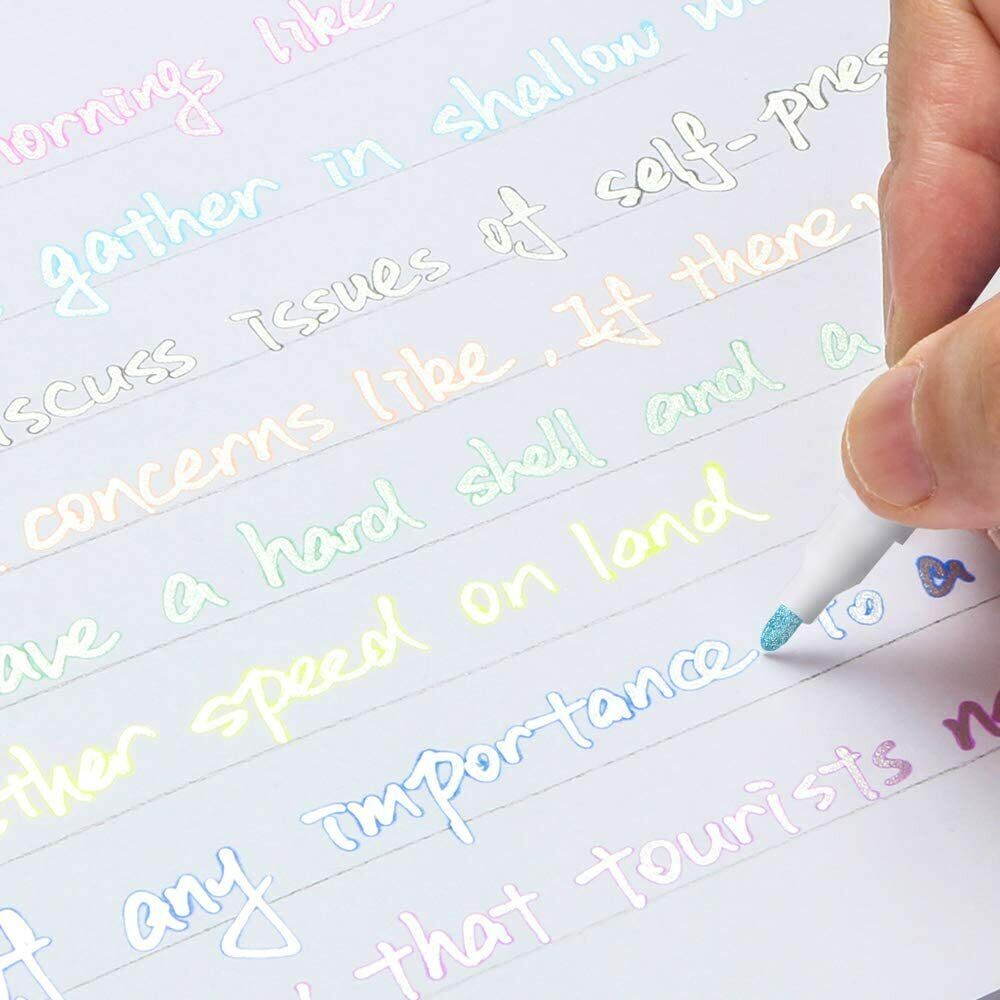 mornings like
gather in shallow
iscuss issues of self-pres
concerns like, If there
ave a hard shell and a
ther speed on land
any importance to a
that tourists